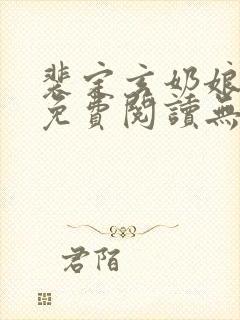 裴宗玄奶娘
免費閱讀無
君陌